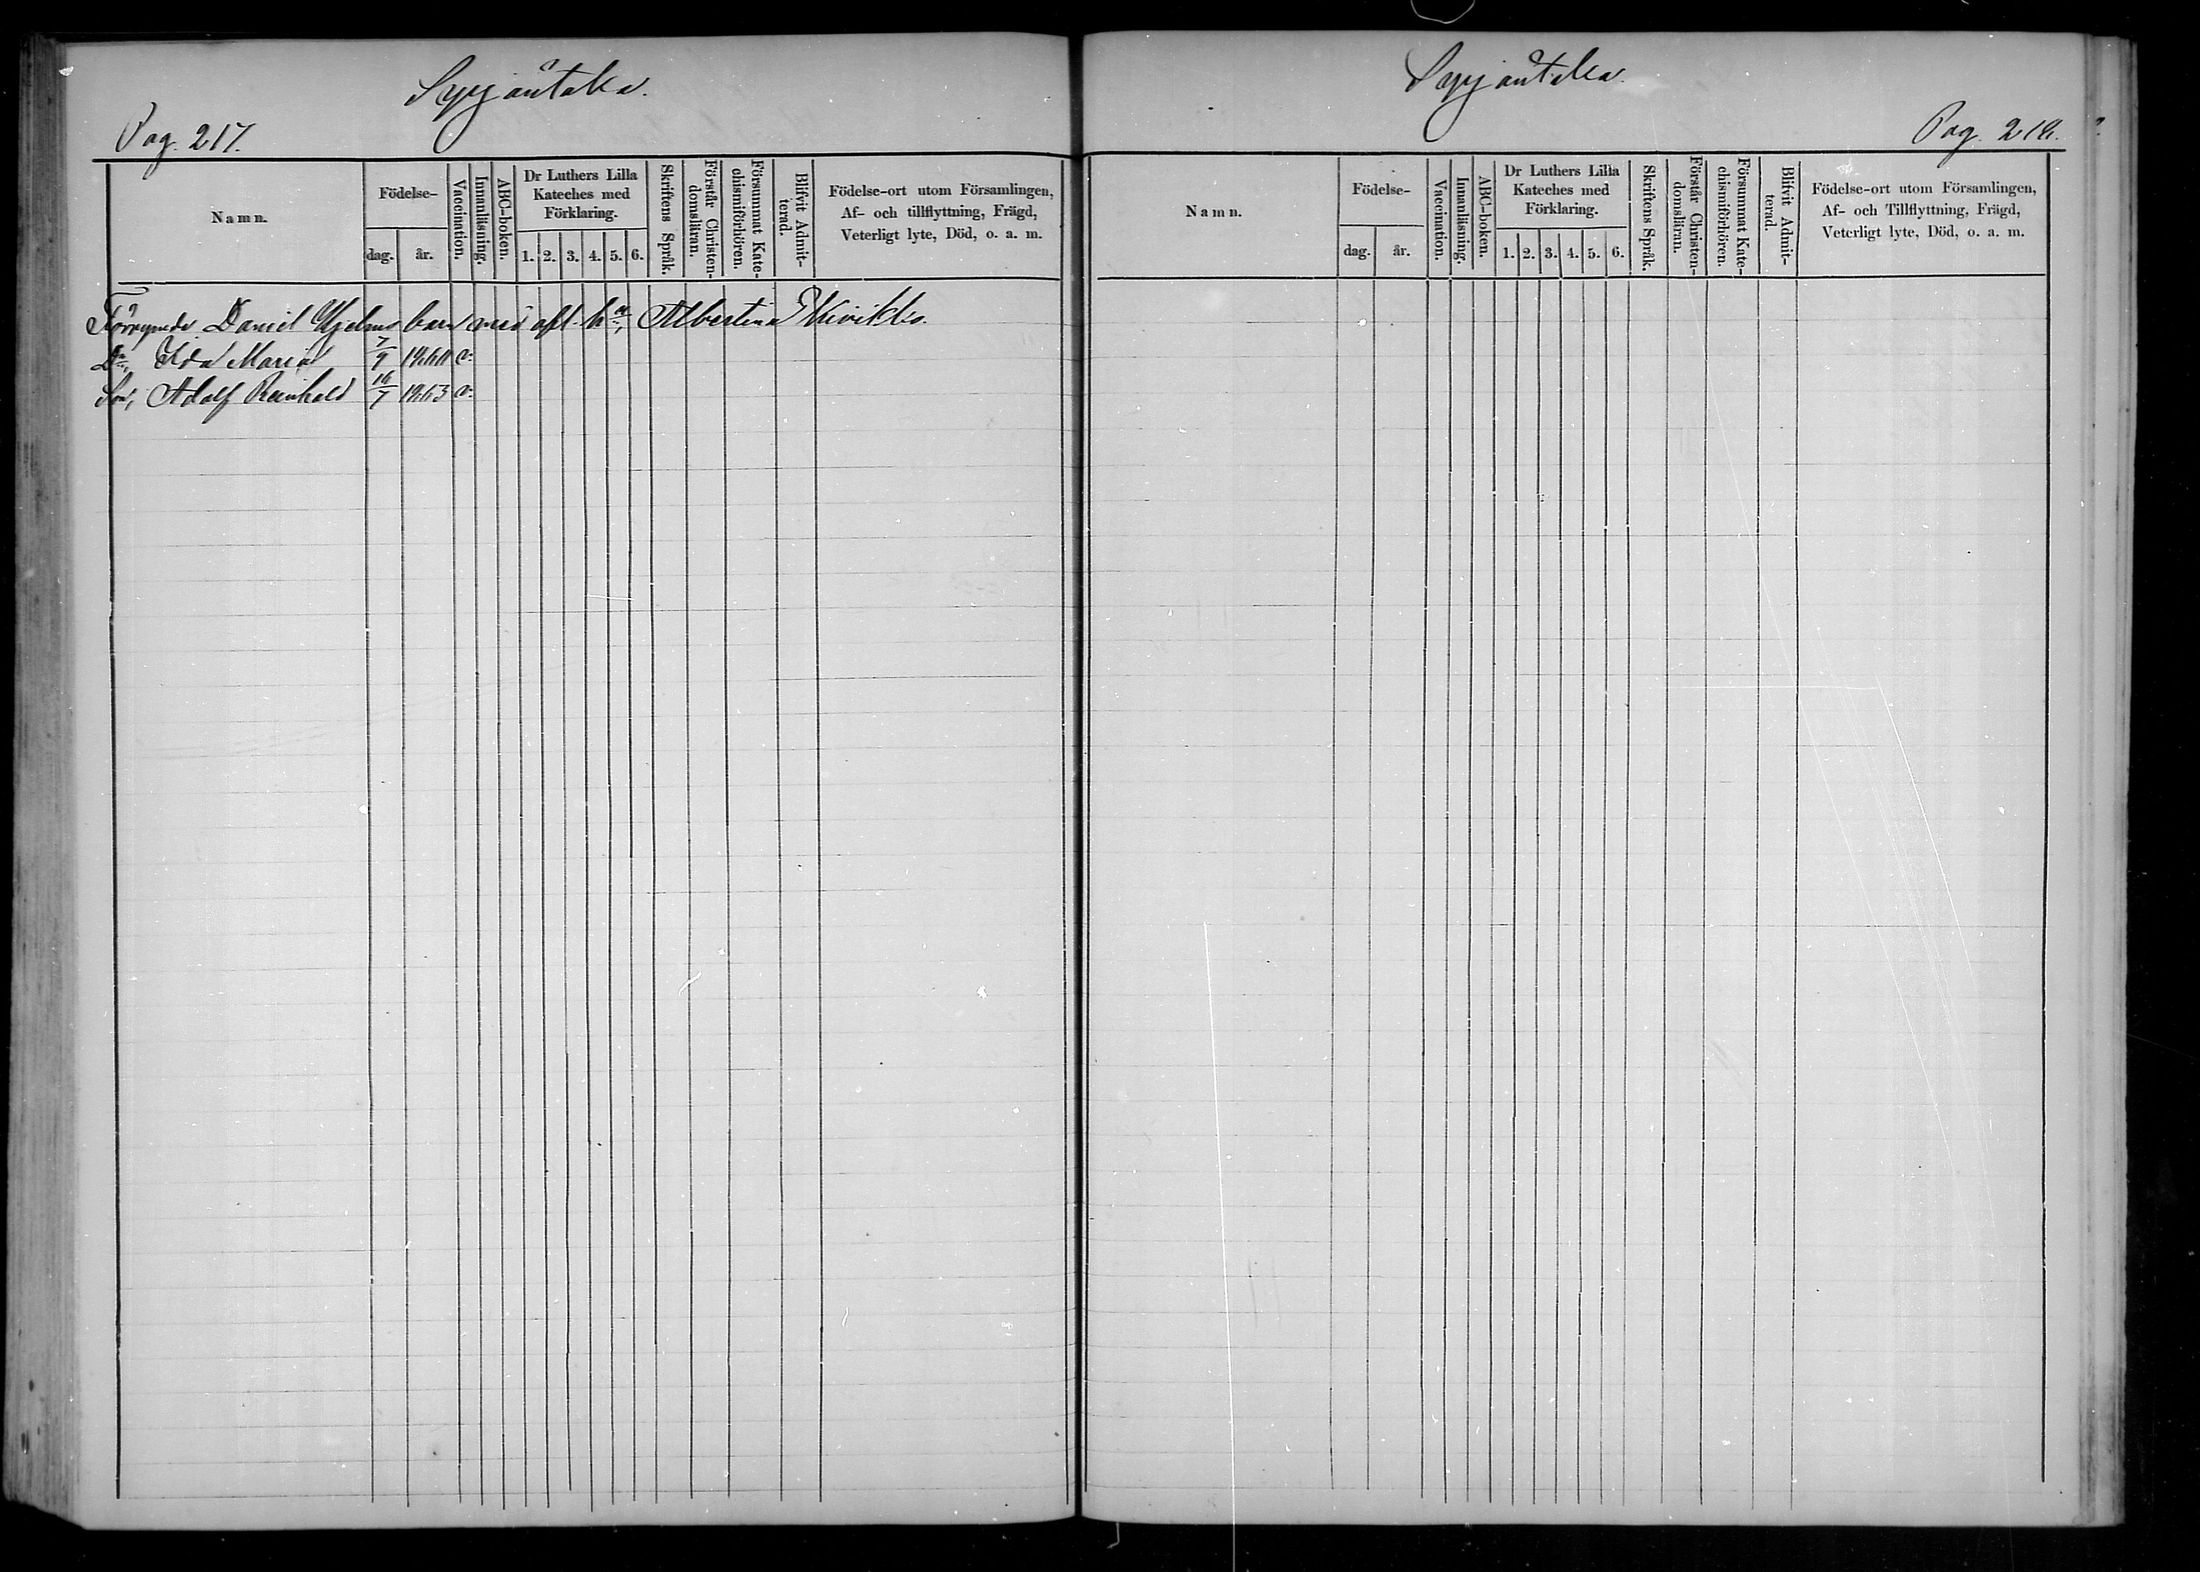 Syrjäntaka.
Pag. 217.
Namn.
Födelse-
dag.
år.
Vaccination.
Innanläsning.
ABC-boken.
Dr Luthers Lilla
Kateches med
Förklaring.
1. 2. 3. 4. 5. 6.
Skriftens Språk.
Förstår Christen-
domsläran.
Försummat Kate-
chismiförhören.
Blifvit Admit-
terad.
Födelse-ort utom Församlingen,
Af- och tillflyttning, Frägd,
Veterligt lyte, Död, o. a. m.
Förrymde Daniel Hjelms barn med afl. h:u, Albertina
Dr, Ida Maria 7/9 1860 v.
Son, Adolf Reinhold 18/7 1863 v.
Syrjäntaka.
Pag. 218.
Namn.
Födelse-
dag.
år.
Vaccination.
Innanläsning.
ABC-boken.
Dr Luthers Lilla
Kateches med
Förklaring.
1. 2. 3. 4. 5. 6.
Skriftens Språk.
Förstår Christen-
domsläran.
Försummat Kate-
chismiförhören.
Blifvit Admit-
terad.
Födelse-ort utom Församlingen,
Af- och Tillflyttning, Frägd,
Veterligt lyte, Död, o. a. m.